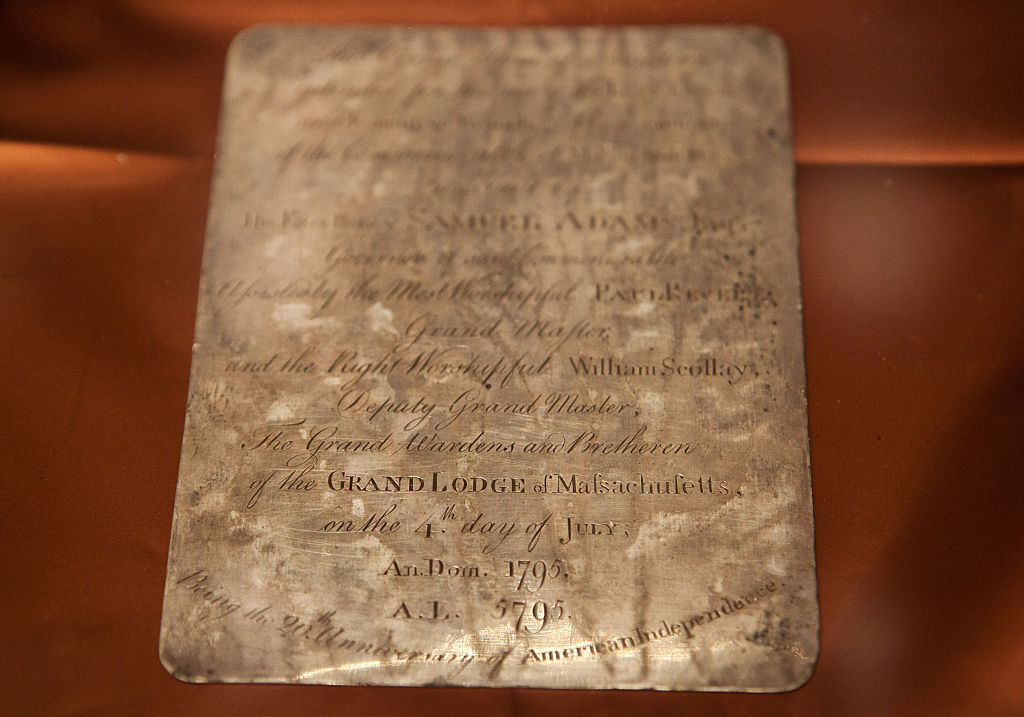 of the
was laid by
His Excellency SAMUEL ADAMS, Esq.
Governor of said Commonwealth
Assisted by the Most Worshipful PAUL REVERE,
Grand Maſter,
and the Right Worshipful William Scollay,
Deputy Grand Master,
The Grand Wardens and Bretheren
of the GRAND LODGE of Maſsachuſetts,
on the 4.th day of JULY;
An. Dom. 1795.
A.L. 5795.
Being the 20.th Anniversary of American Independence.